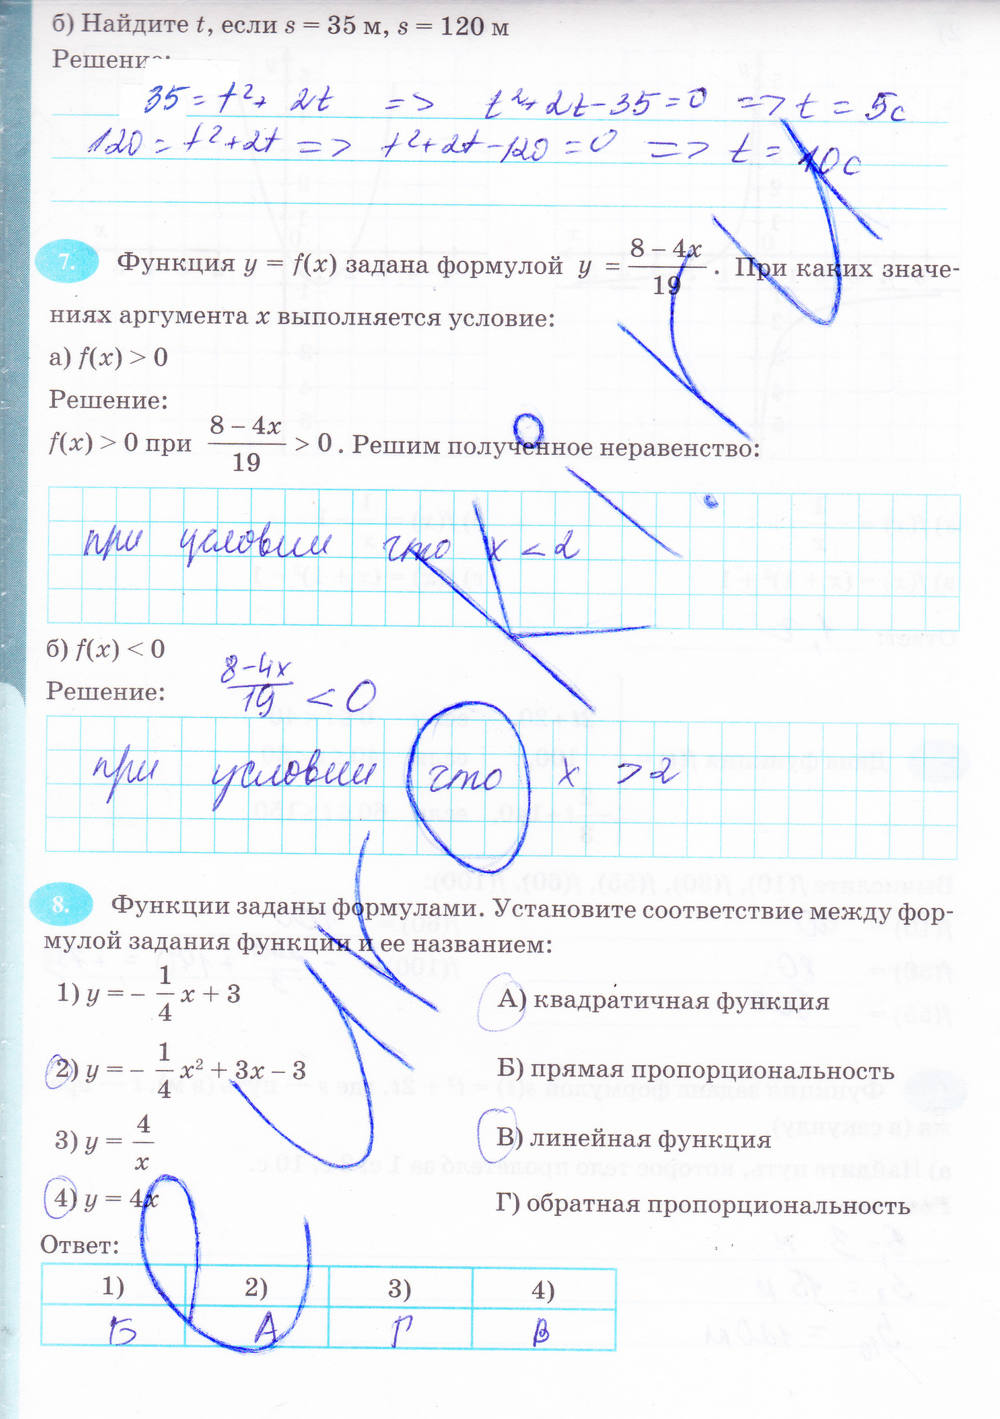 б) Найдите t, если s = 35 м, s = 120 м
Решение:
35 = t²+ 2t => t²+2t-35=0 => t = 5c
120 = t²+2t => t²+2t-120=0 => t = 10c
7. Функция y = f(x) задана формулой y = (8 – 4x)/19 . При каких значе-
ниях аргумента x выполняется условие:
а) f(x) > 0
Решение:
f(x) > 0 при (8 – 4x)/19 > 0 . Решим полученное неравенство:
при условии что x < 2
б) f(x) < 0
Решение: (8-4x)/19 < 0
при условии что x > 2
8. Функции заданы формулами. Установите соответствие между фор-
мулой задания функции и ее названием:
1) y = – 1/4 x + 3 А) квадратичная функция
2) y = – 1/4 x² + 3x – 3 Б) прямая пропорциональность
3) y = 4/x В) линейная функция
4) y = 4x Г) обратная пропорциональность
Ответ:
1) 2) 3) 4)
Б А Г В